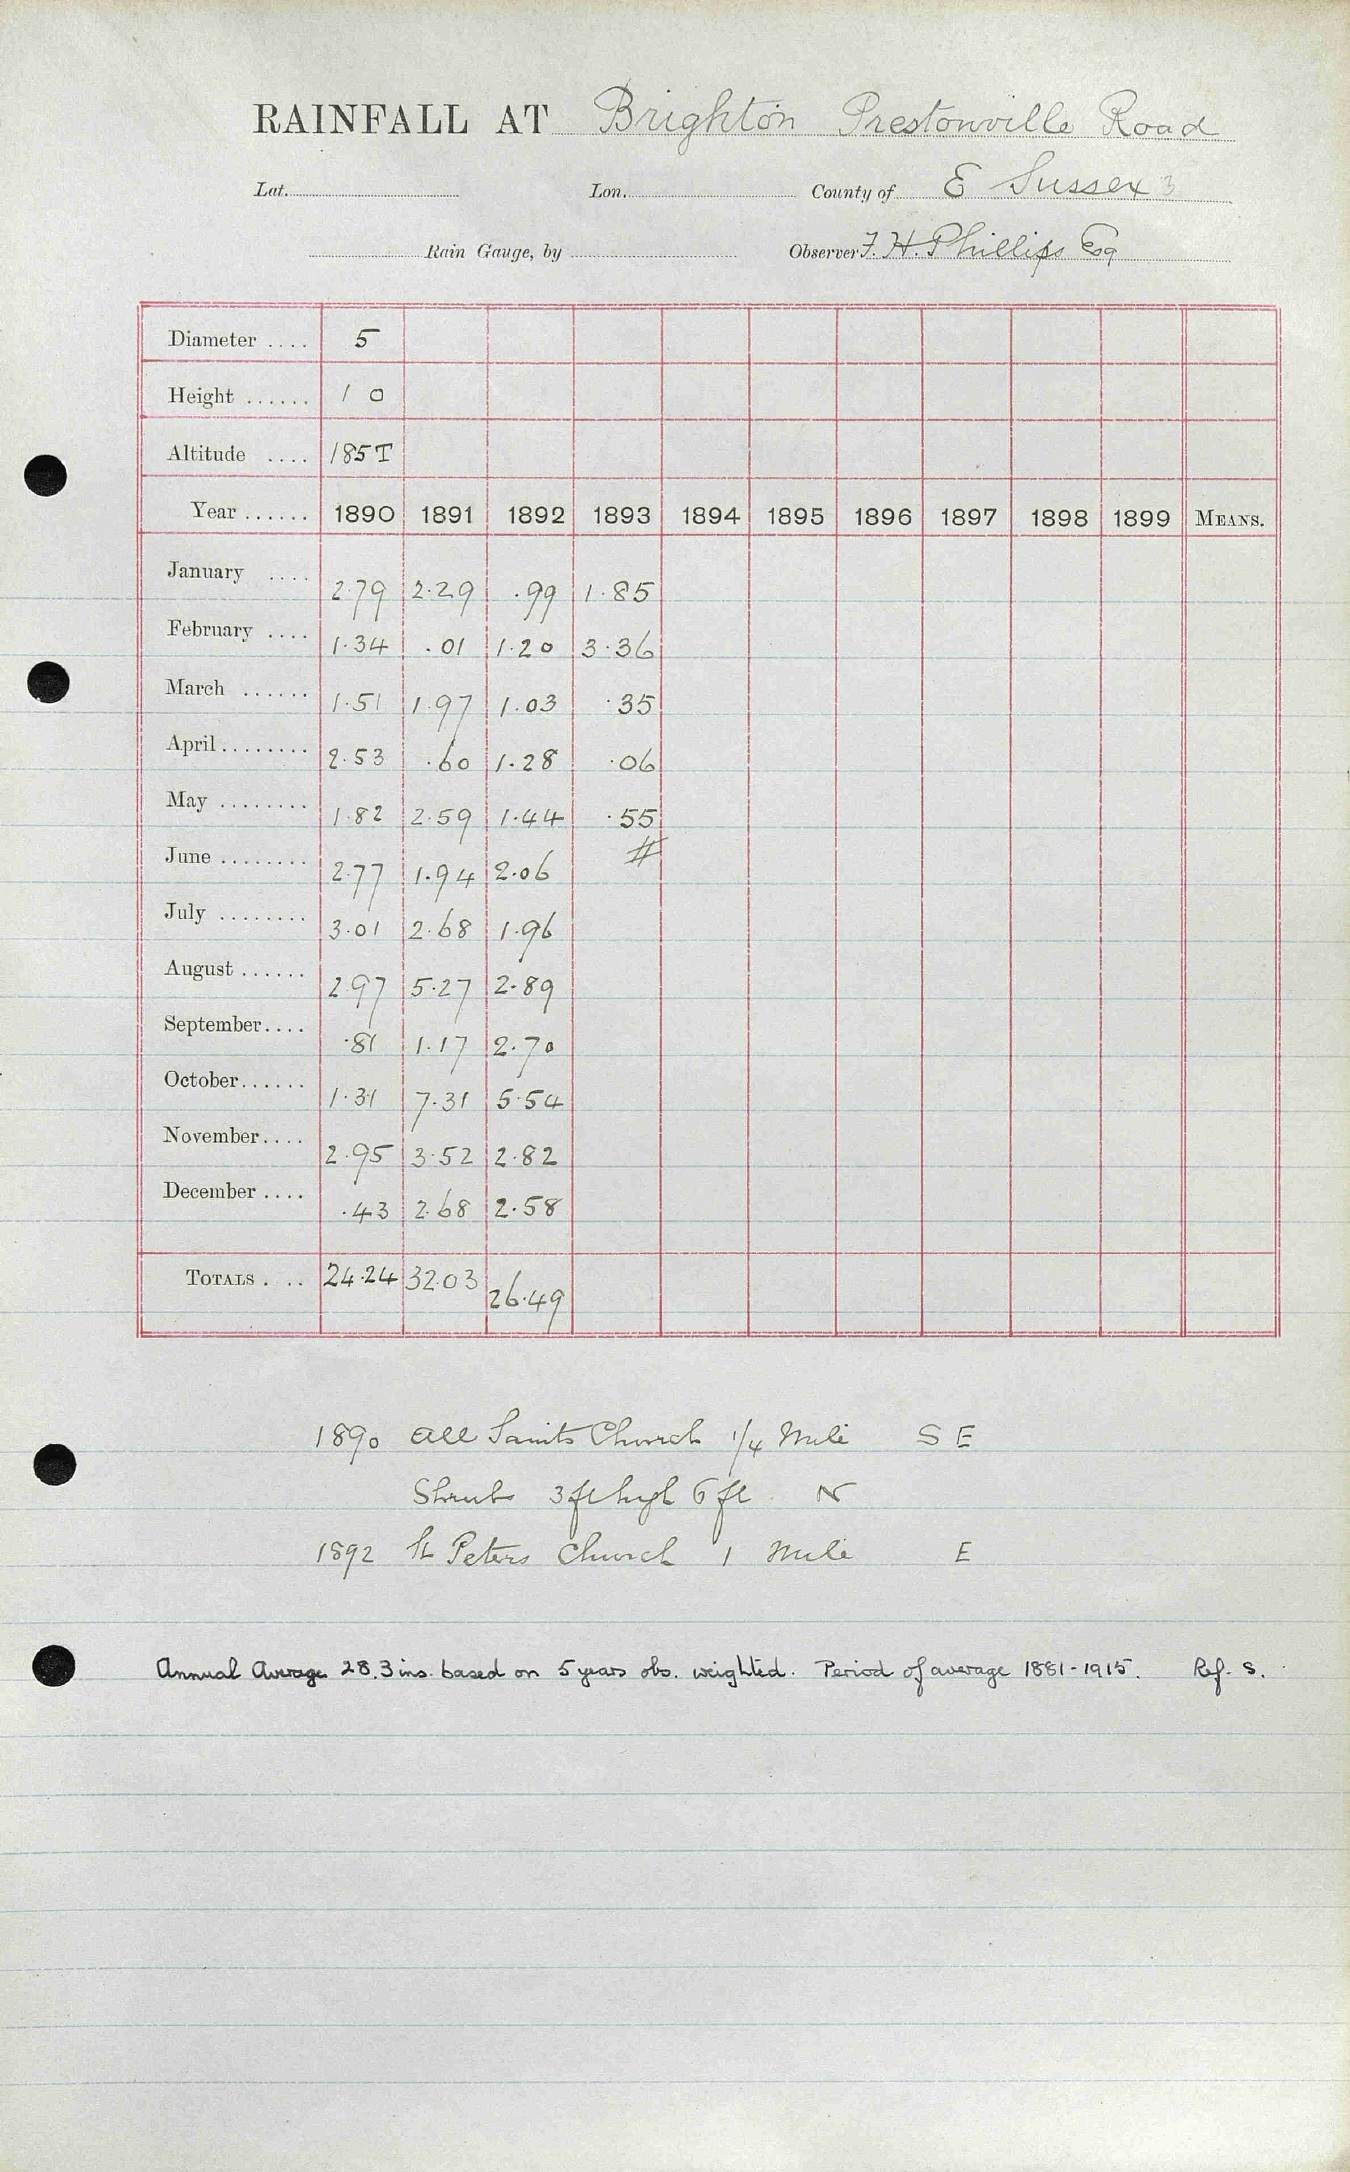 RAINFALL AT Brighton Prestonville Road
Lat. Lon. County of E Sussex 3
Rain Gauge, by Observer F. H. Phillips Esq
Diameter .... 5
Height ...... 1 0
Altitude .... 185T
Year ...... 1890 1891 1892 1893 1894 1895 1896 1897 1898 1899 MEANS.
January .... 2.79 2.29 .99 1.85
February .... 1.34 .01 1.20 3.36
March ...... 1.51 1.97 1.03 .35
April ........ 2.53 .60 1.28 .06
May ........ 1.82 2.59 1.44 .55
June ........ 2.77 1.94 2.06 #
July ........ 3.01 2.68 1.96
August ...... 2.97 5.27 2.89
September.... .81 1.17 2.70
October...... 1.31 7.31 5.54
November.... 2.95 3.52 2.82
December .... .43 2.68 2.58
TOTALS . .. 24.24 32.03 26.49
1890 All Saints Church 1/4 Mile S E
Shrubs 3ft high 6 ft N
1892 St Peters Church 1 Mile E
Annual Average 28.3 ins. based on 5 years obs. weighted. Period of average 1881-1915. Ref. S.